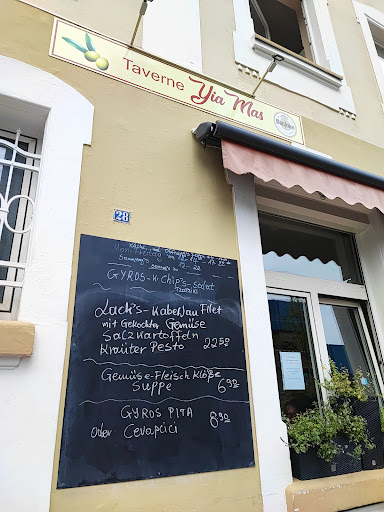 Taverne Yia Mas
28
GYROS-K-Chip's-Salat
TZATZIKI
Lach's-Kabeljau Filet
mit Gekochter Gemüse
Salzkartoffeln
Kräuter Pesto 22.50
Gemüse-Fleisch Klöße
Suppe 6.90
GYROS PITA 8.90
Oder Cevapcici